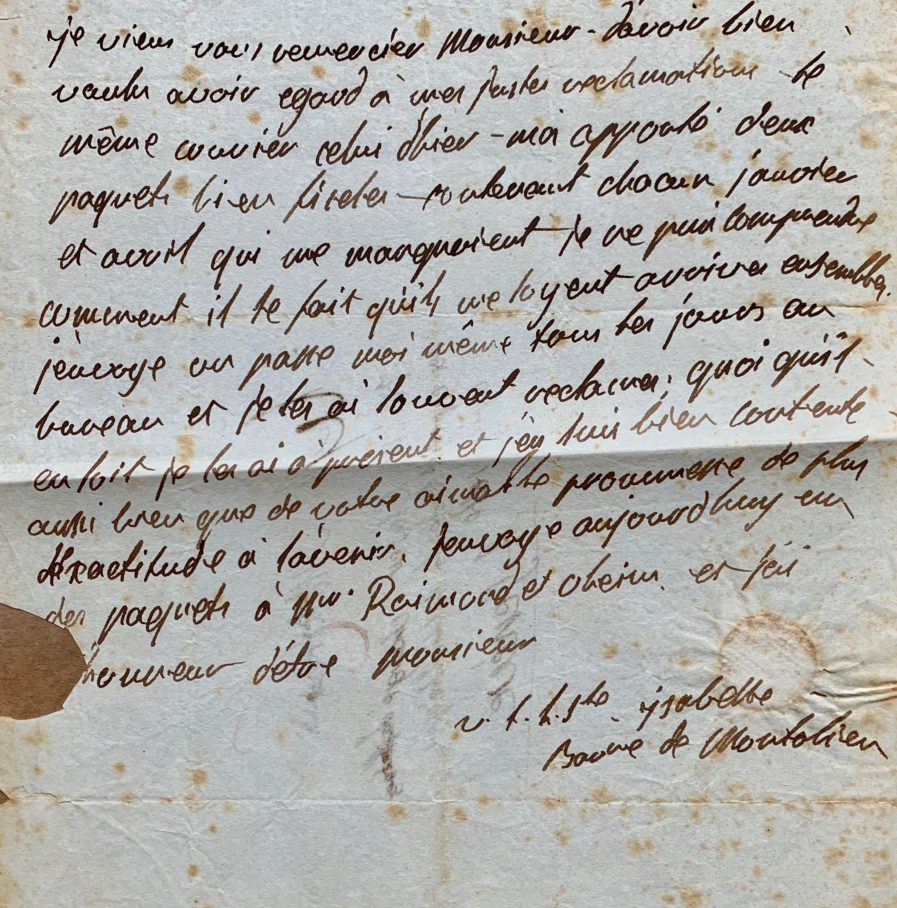 je viens vous remercier Monsieur - davoir bien
voulu avoir egard à mes justes reclamations le
même courrier celui d'hier - m'a apporté deux
paquets bien ficelés - contenant chacun janvier
et avril qui me manquoient je ne puis comprendre
comment il se fait qu'ils me soyent arrivés ensembles.
j'envoye ou passe moi même tous les jours au
bureau et je les ai souvent reclamés, quoi qu'il
en soit je les ai à présent et j'en suis bien contente
aussi bien que de votre aimable prommesse de plus
d'exactitude à l'avenir. j'envoye aujourdhuy un
des paquets à Mr. Raimond et et j'ai
honneur d'être Monsieur
v. t. h. Ste. ysabelle
Baonne de Montolieu